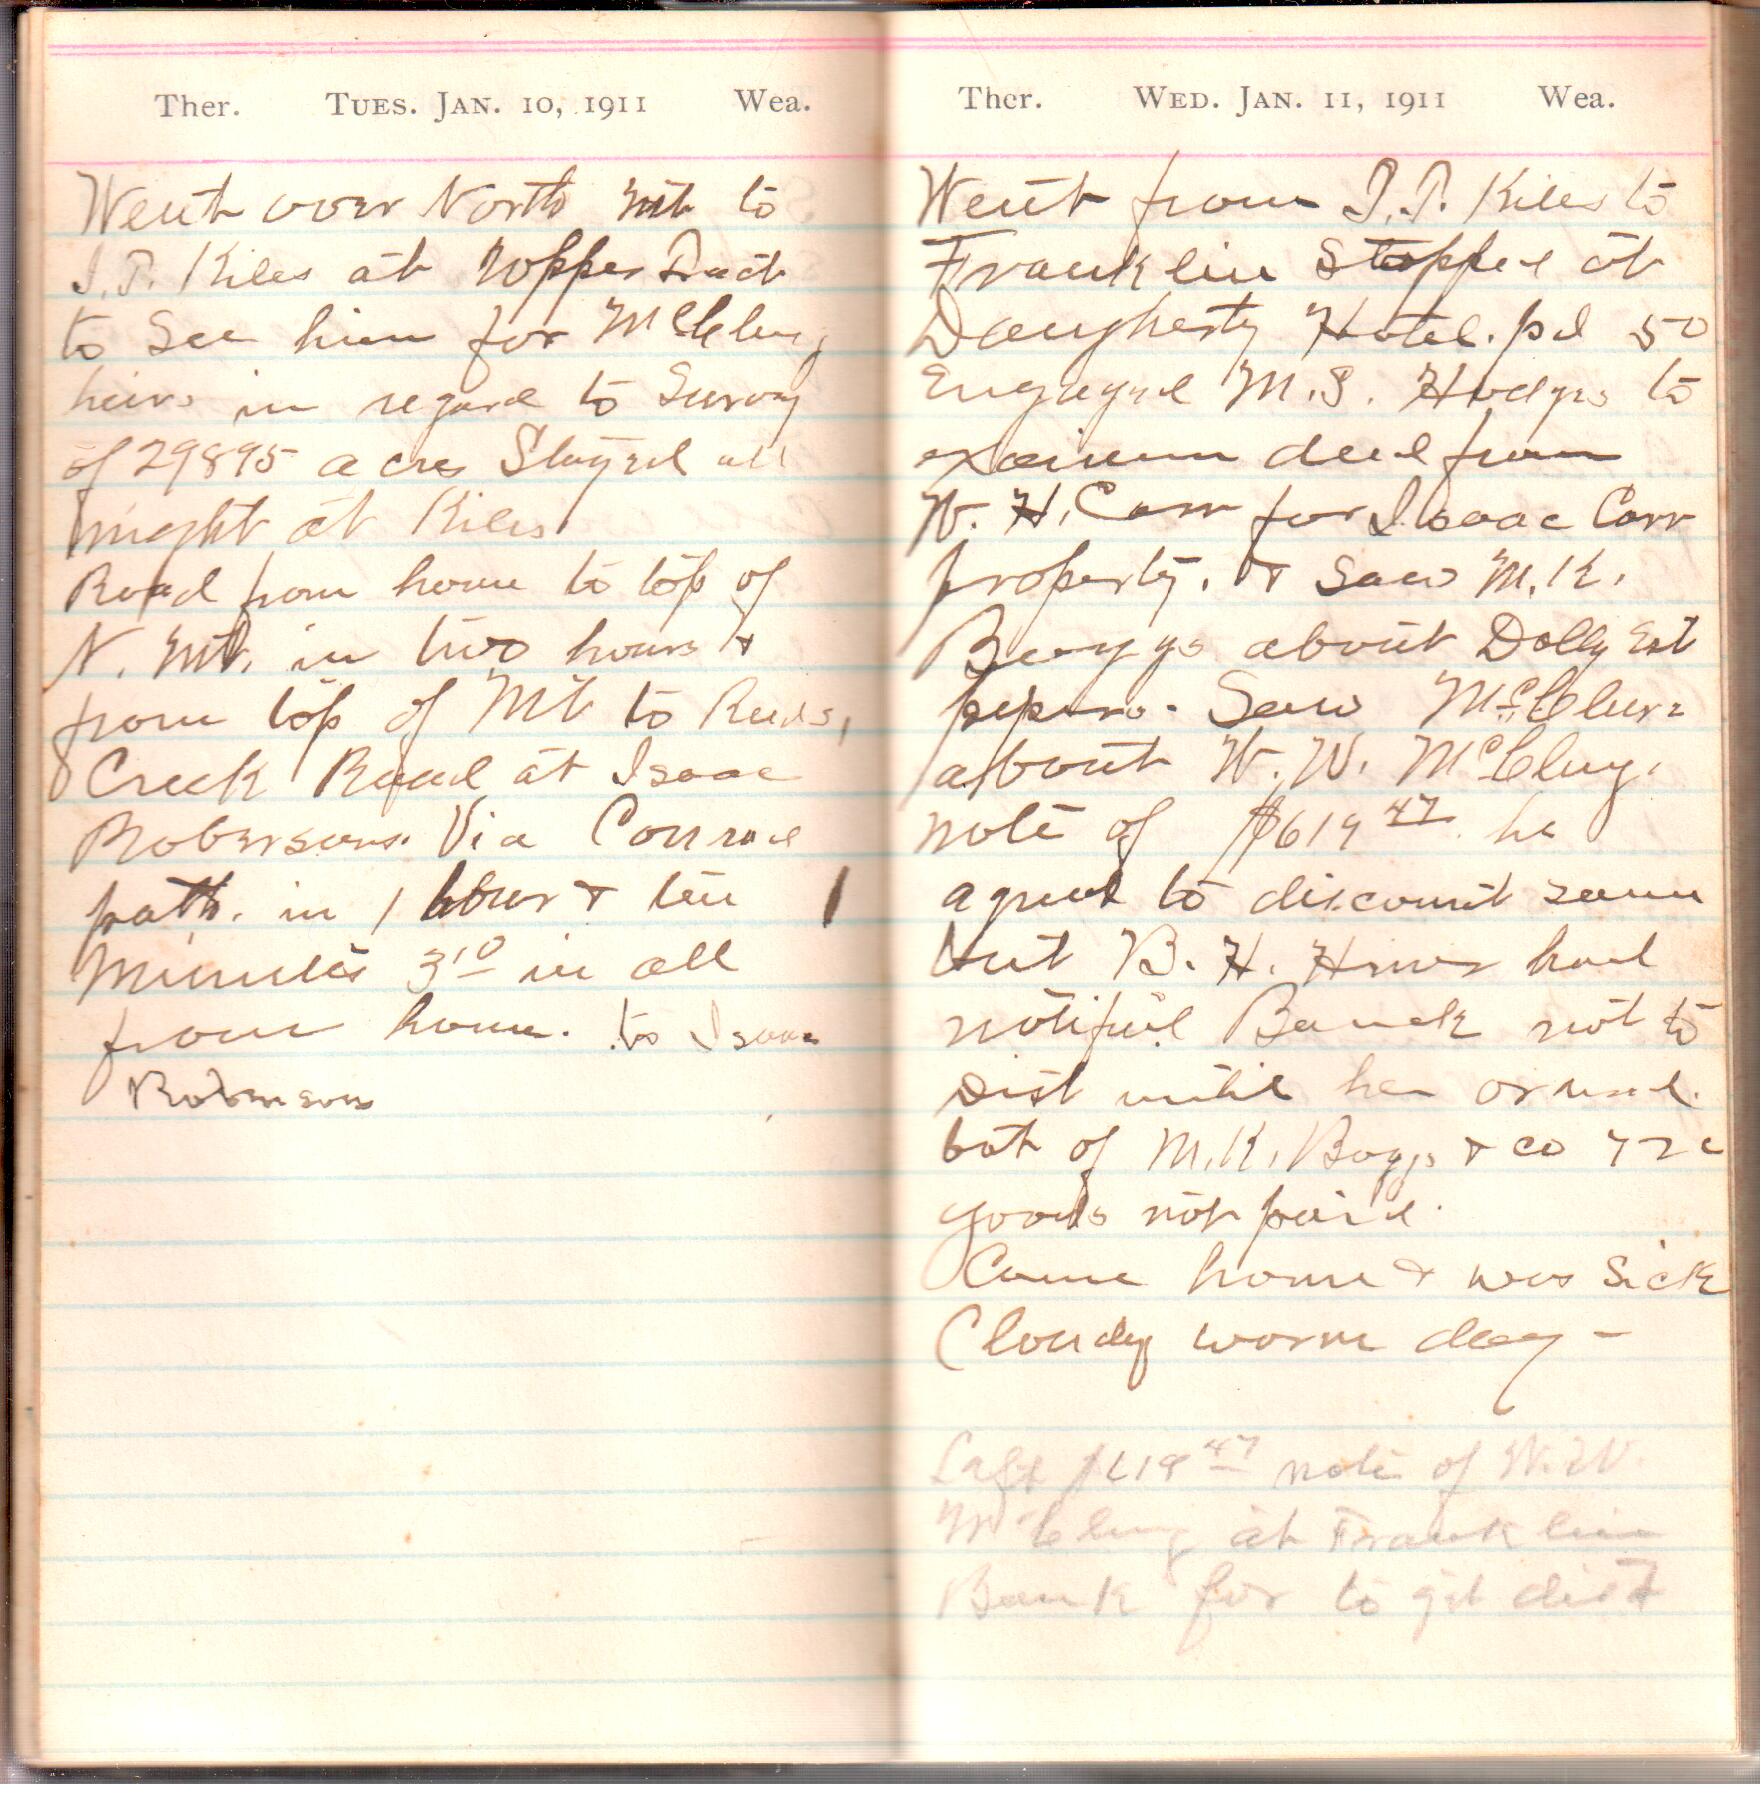 Ther. Tues. Jan. 10, 1911 Wea.
Went over North Mt to
I. T. Kiles at Upper Tract
to See him for McClung
heirs in regard to Survey
of 29895 acres Stayed all
night at Kiles
Road from home to top of
N. Mt. in two hours &
from top of Mt to Reeds,
Creek Road at Isaac
Robersons. Via Conrad
path. in 1 hour & ten
Minutes 3 10 in all
from home. to Isaac
Robinsons
Ther. Wed. Jan. 11, 1911 Wea.
Went from I. T. Kiles to
Franklin Stopped at
Daugherty Hotel. pd 50
Engaged M. S. Hodges to
examine deed from
W. H. Carr for Isaac Carr
property. & Saw M. K.
Boggs about Dolly Est
papers. Saw McClure
about W. W. McClung.
note of $619 47 he
agreed to discount same
but B. H. Hiner had
notified Bank not to
Dist until
bot of M. K. Boggs & co 72c
goods not paid.
Came home & was Sick
Cloudy worm day -
Left $619 47 note of W. W.
McClung at Franklin
Bank for to git dist